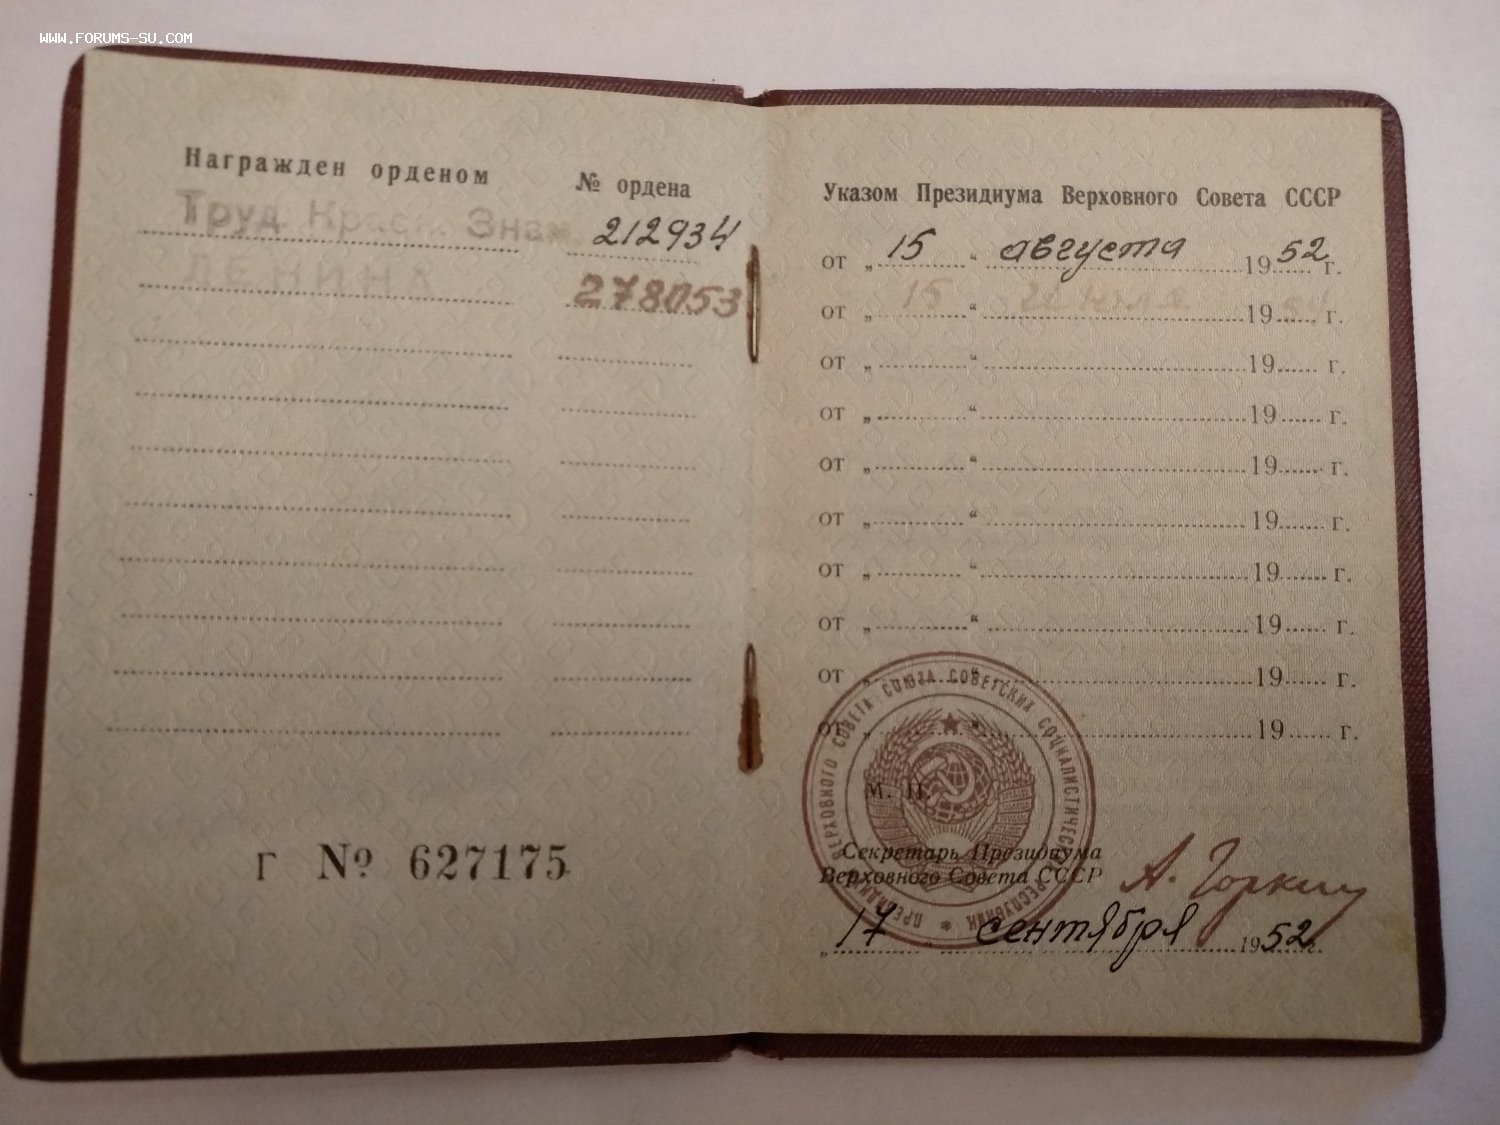 WWW.FORUMS-SU.COM
Награжден орденом № ордена
Труд. Красн. Знам. 212934
ЛЕНИНА 278053
Г № 627175
Указом Президиума Верховного Совета СССР
от „ 15 “ августа 1952 г.
от „ 15 “ июля 1954 г.
от „ “ 19 г.
от „ “ 19 г.
от „ “ 19 г.
от „ “ 19 г.
от „ “ 19 г.
от „ “ 19 г.
от „ “ 19 г.
от „ “ 19 г.
М. П.
ПРЕЗИДИУМ ВЕРХОВНОГО СОВЕТА СОЮЗА СОВЕТСКИХ СОЦИАЛИСТИЧЕСКИХ РЕСПУБЛИК
Секретарь Президиума
Верховного Совета СССР
А. Горкин
„ 17 “ сентября 1952 г.